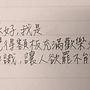 好,我是
得額板充滿歡樂
識,讓人欲罷不